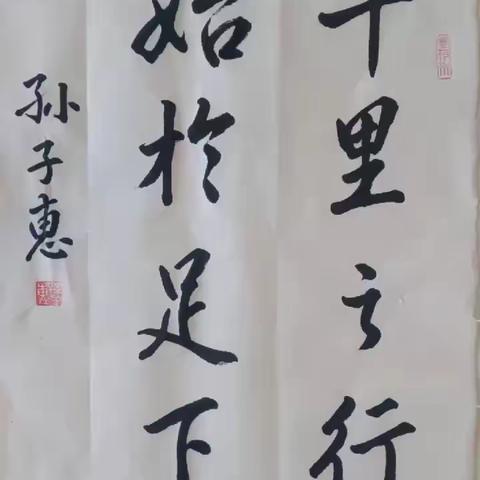 千里之行
始於足下
孙子惠